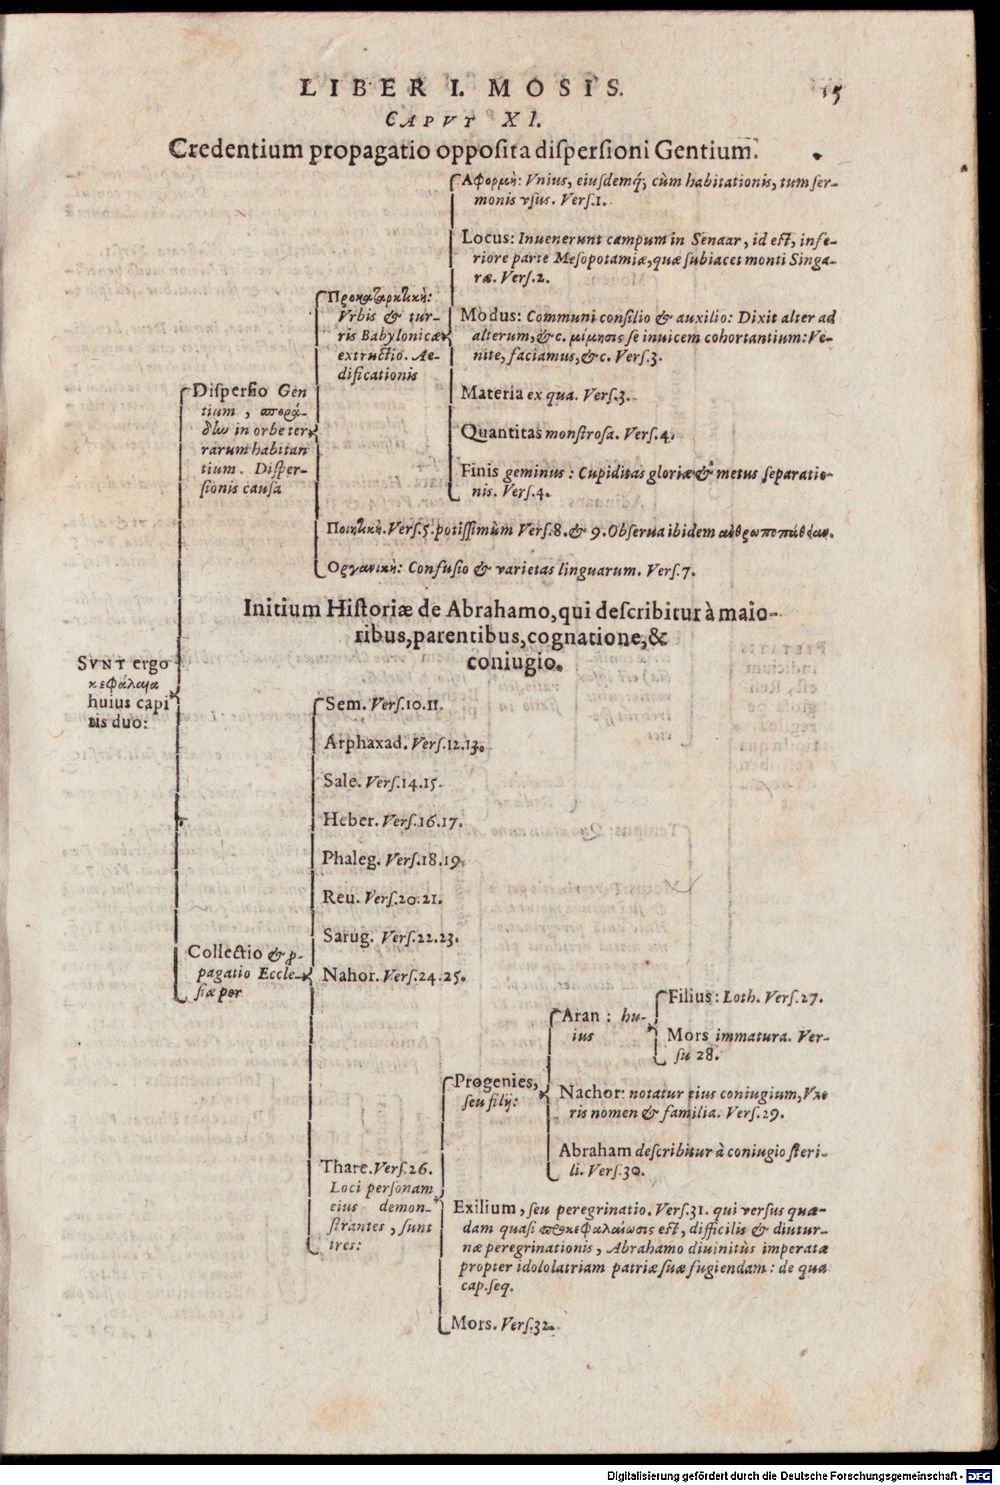 LIBER I. MOSIS.
15
CAPVT XI.
Credentium propagatio opposita dispersioni Gentium.
SVNT ergo
κεφάλαια
huius capi
tis duo:
Dispersio Gen
tium, σποράδω
in orbe ter
rarum habitan
tium. Disper-
sionis causa
Προκαταρκτικὴ:
Vrbis & tur-
ris Babylonicæ
extructio. Ae-
dificationis
Αφορμὴ: Vnius, eiusdemq́; cùm habitationis, tum ser-
monis vsus. Vers.1.
Locus: Inuenerunt campum in Senaar, id est, infe-
riore parte Mesopotamiæ, quæ subiacet monti Singa-
ræ. Vers.2.
Modus: Communi consilio & auxilio: Dixit alter ad
alterum, &c. μίμησις se inuicem cohortantium: Ve-
nite, faciamus, &c. Vers.3.
Materia ex qua. Vers.3.
Quantitas monstrosa. Vers.4.
Finis geminus: Cupiditas gloriæ & metus separatio-
nis. Vers.4.
Ποιητικὴ. Vers.5. potissimùm Vers.8. & 9. Obserua ibidem ανθρωποπάθειαν.
Οργανικὴ: Confusio & varietas linguarum. Vers.7.
Initium Historiæ de Abrahamo, qui describitur à maio-
ribus, parentibus, cognatione, &
coniugio.
Collectio & ꝓ-
pagatio Eccle-
siæ per
Sem. Vers.10.11.
Arphaxad. Vers.12.13.
Sale. Vers.14.15.
Heber. Vers.16.17.
Phaleg. Vers.18.19.
Reu. Vers.20.21.
Sarug. Vers.22.23.
Nahor. Vers.24.25.
Thare. Vers.26.
Loci personam
eius demon-
strantes, sunt
tres:
Progenies,
seu filij:
Aran: hu-
ius
Filius: Loth. Vers.27.
Mors immatura. Ver-
su 28.
Nachor: notatur eius coniugium, Vxo
ris nomen & familia. Vers.29.
Abraham describitur à coniugio steri-
li. Vers.30.
Exilium, seu peregrinatio. Vers.31. qui versus qua-
dam quasi προκεφαλαίωσις est, difficilis & diutur-
næ peregrinationis, Abrahamo diuinitùs imperatæ
propter idololatriam patriæ suæ fugiendam: de qua
cap.seq.
Mors. Vers.32.
Digitalisierung gefördert durch die Deutsche Forschungsgemeinschaft - DFG